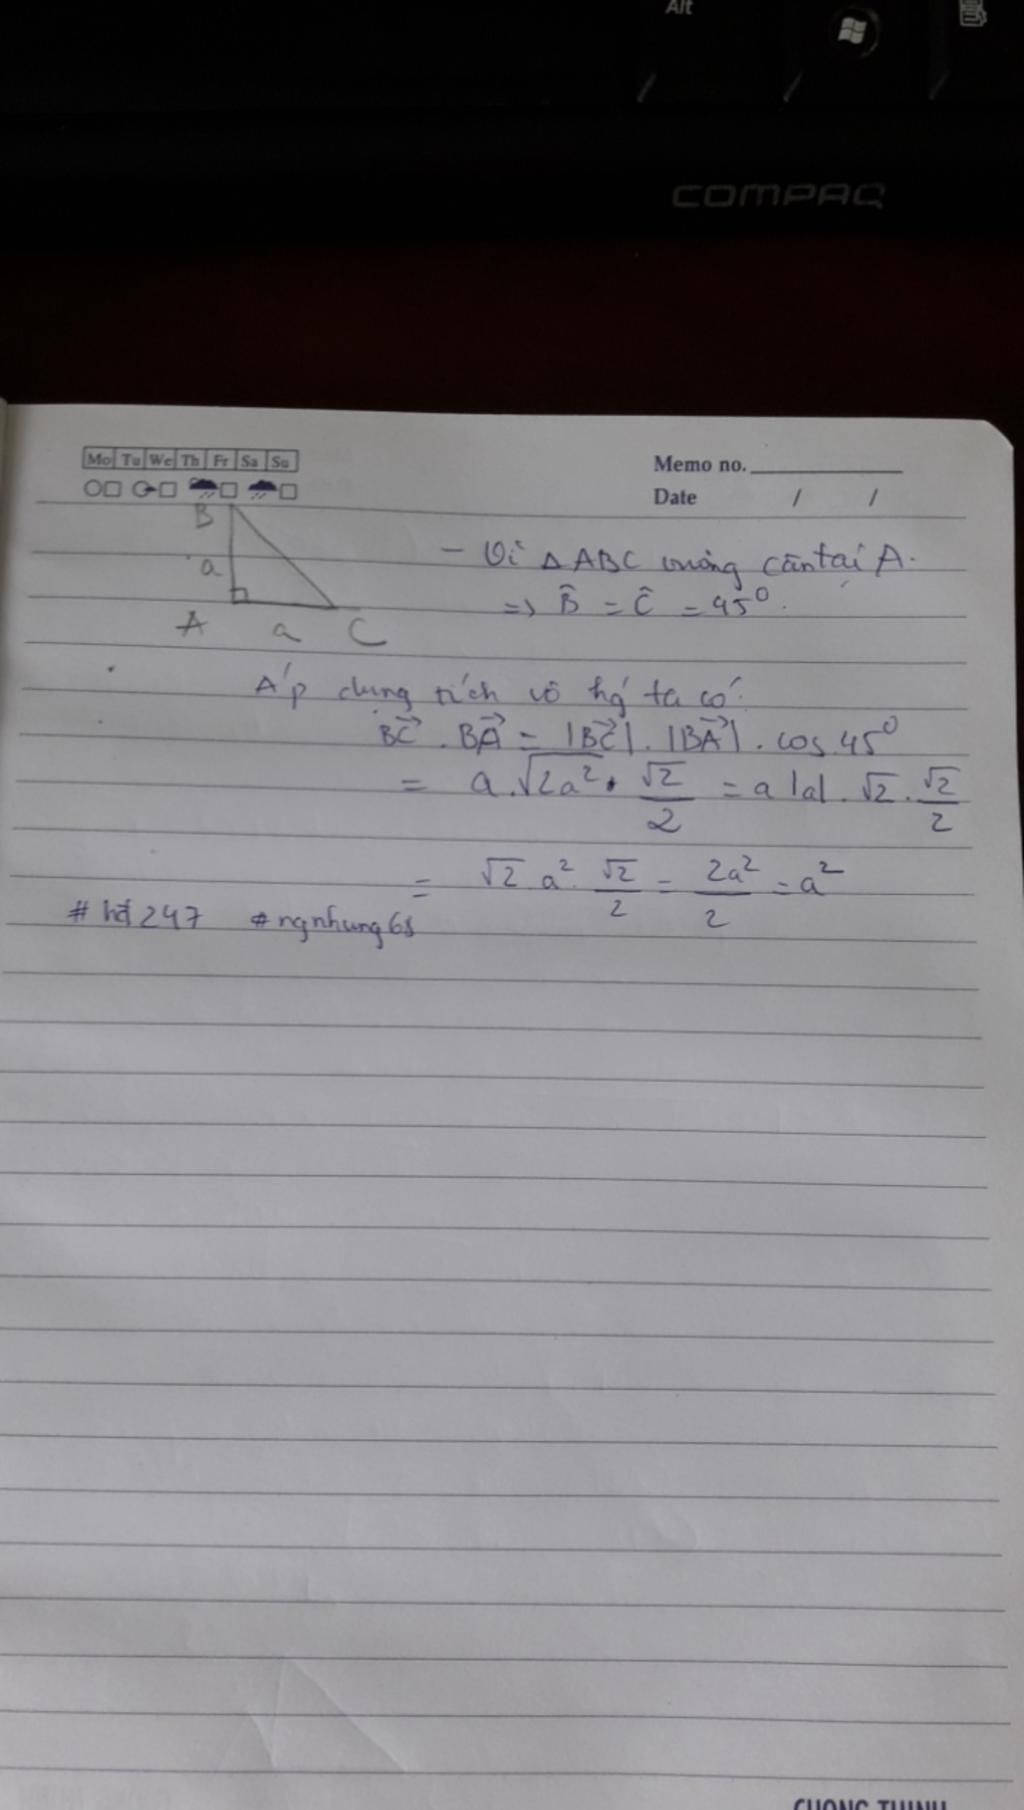 Alt
COMPAQ
Mo Tu We Th Fr Sa Su
Memo no.
Date / /
B
a
A a C
- Vì △ABC vuông cân tại A.
=> B̂ = Ĉ = 45⁰.
Áp dụng tích vô hg' ta có:
BC⃗ . BA⃗ = |BC⃗| . |BA⃗| . cos 45⁰
= a.√2a² . √2/2 = a |a| . √2 . √2/2
= √2 . a² . √2/2 = 2a²/2 = a²
# hđ247 # ngnhung68
CHONG THINH